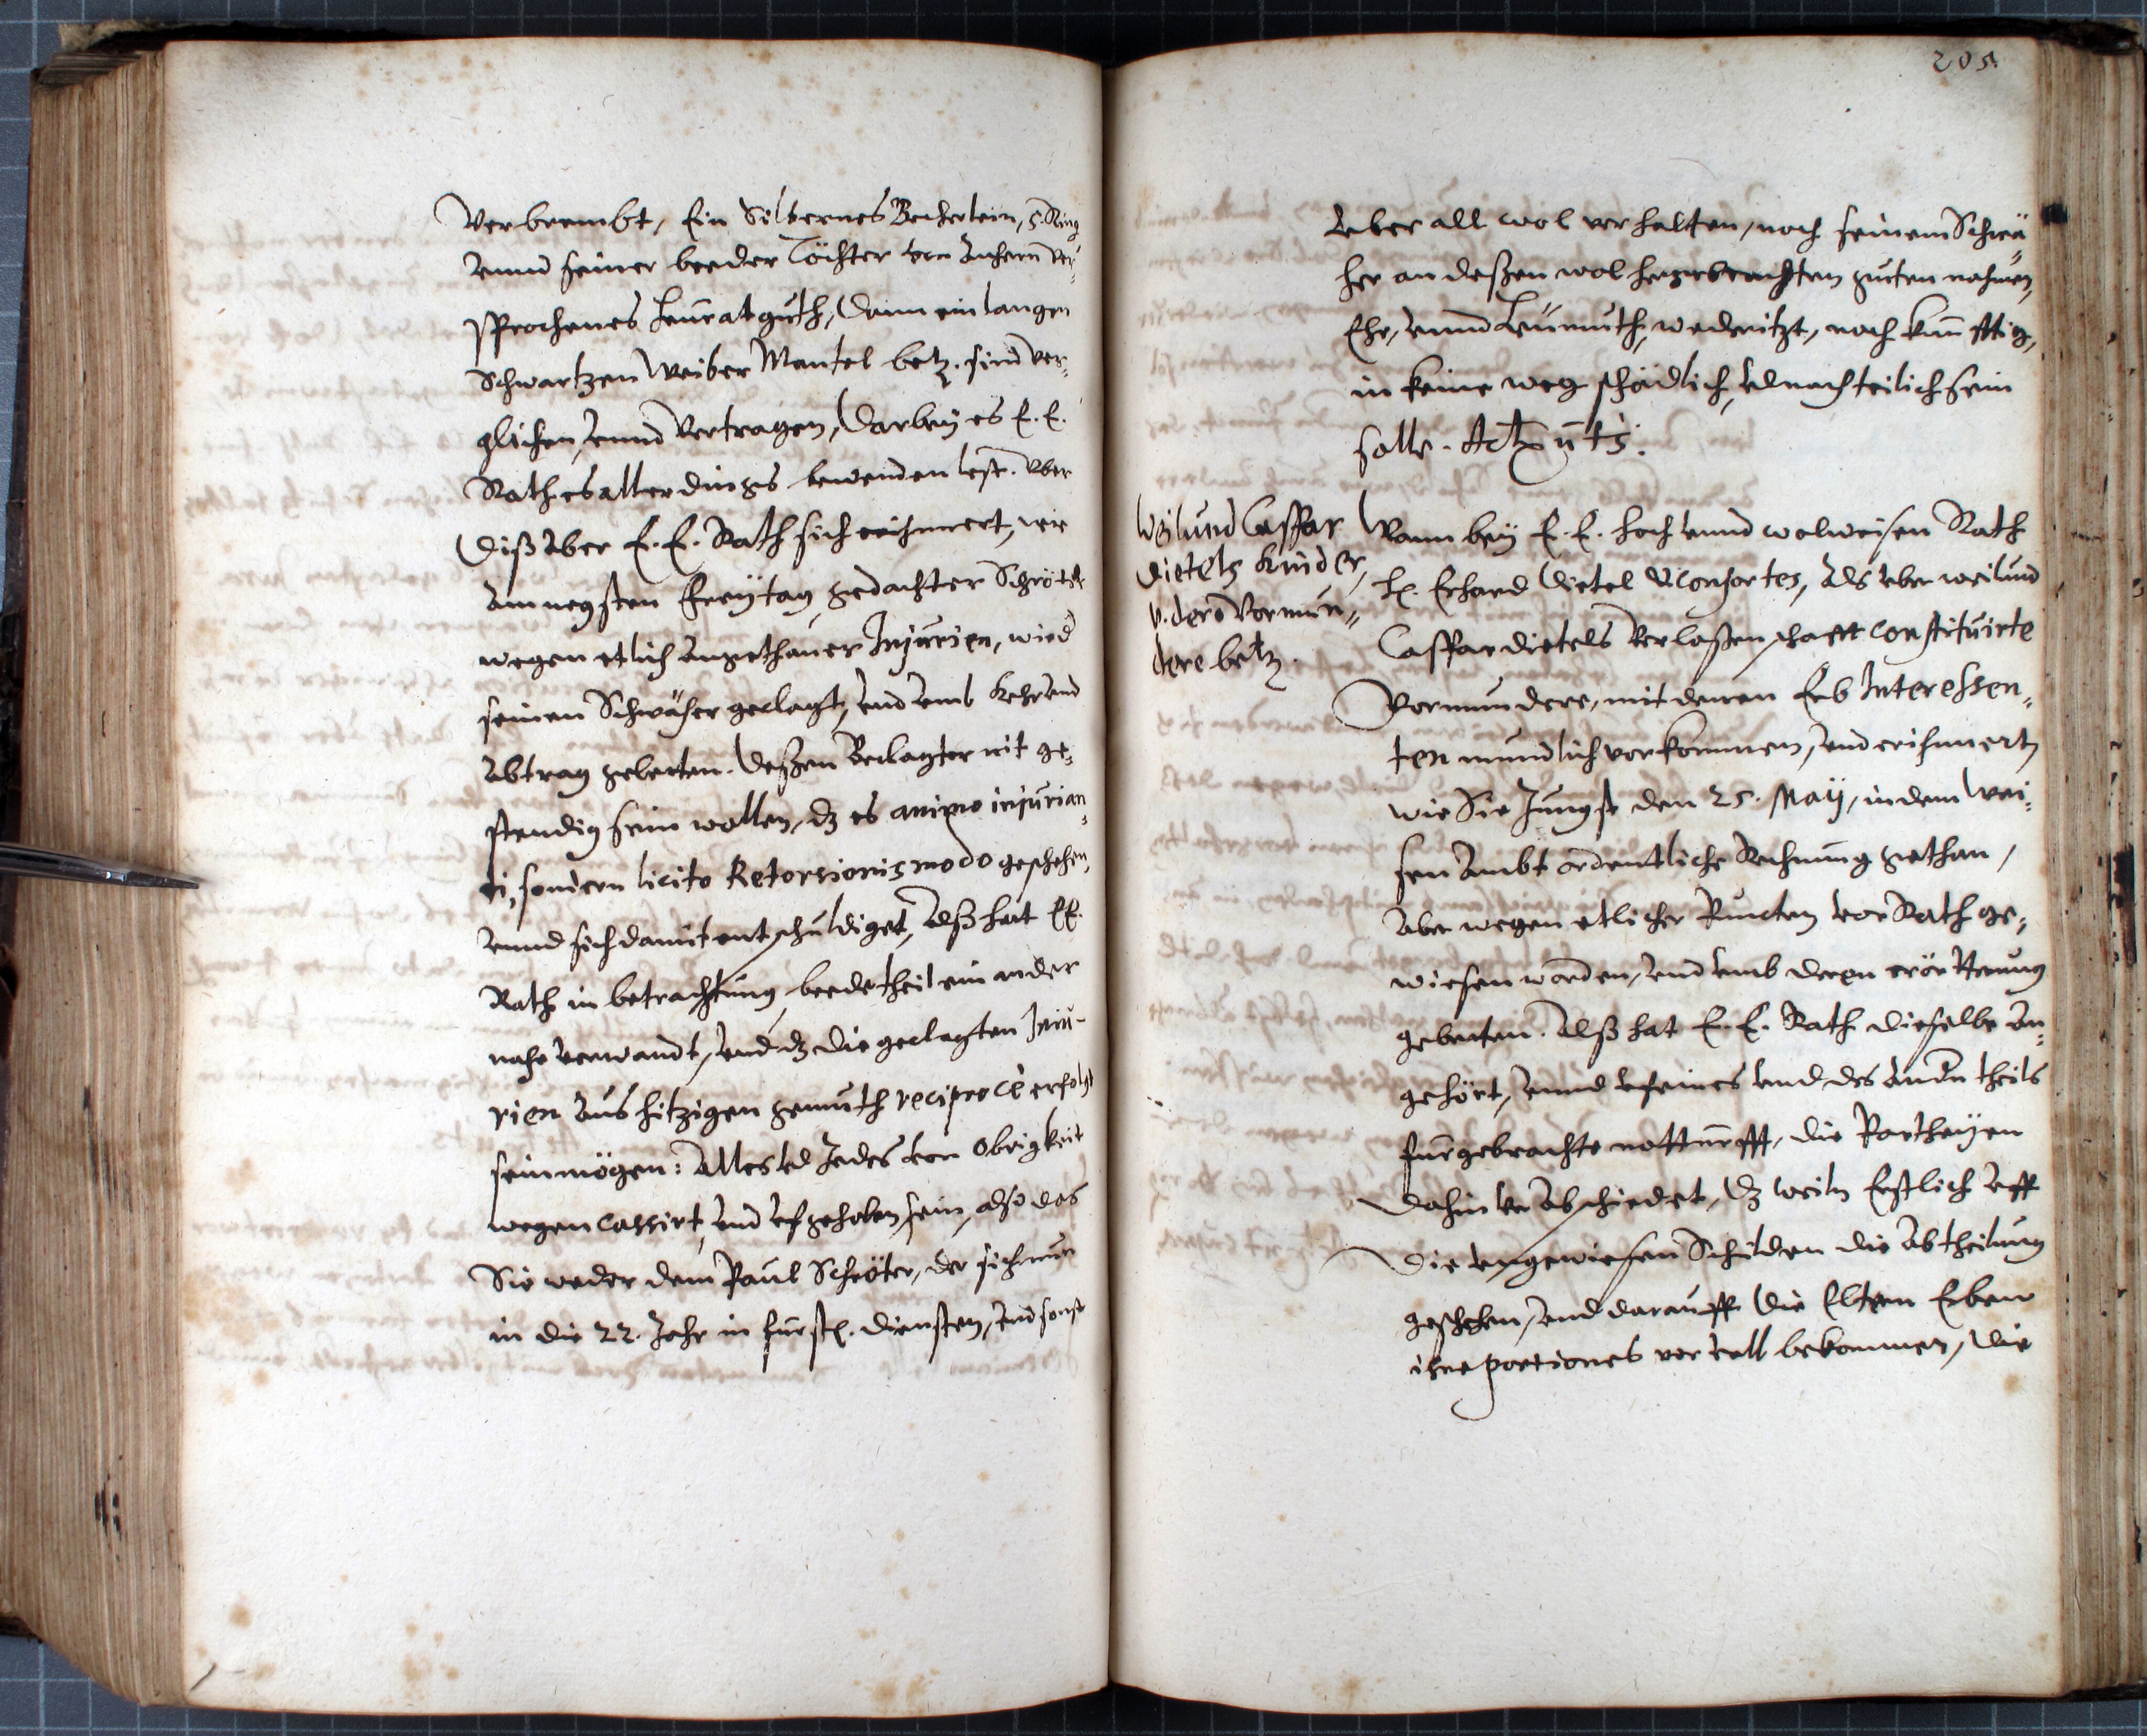 Verbrembt, Ein Silbernes Becherlein, 5. Ring
vnnd seiner beeder Töchter von Anherrn ver¬
sprochenes Heuratguth, Dann ein langen
Schwartzen Weiber Mantel betz. sind ver¬
glichen, vnnd Vertragen, Darbey es E. E.
Rath es allerdings bewenden lest. Vber
Diß aber E. E. Rath sich erihnnert, wie
am negsten Freÿtag gedachter Schröter
wegen etlich angethaner Injurien, wied
seinen Schwäher geclagt, vnd vmb Kehr vnd
abtrag gebetten. Deßen Beclagter nit ge¬
stendig sein wollen, dz es animo injurian¬
di, sondern licito Retorsionis modo geschehen,
vnnd sich damit entschuldiget, Alß hat EE.
Rath in betrachtung beede theil ein ander
nahe verwandt, vnd dz die geclagten Inju¬
rien aus hitzigen gemuth reciprocè erfolgt
sein mögen: Alles vnd Jedes von Obrigkeit
wegen cassirt, vnd vfgehoben sein, also das
Sie weder dem Paul Schröter, der sich nun
in die 22. Jahr in fürstl. diensten, vnd sonst
205.
vber all wol verhalten, noch seinem Schwä¬
her an deßen wol hergebrachten guten nahmen,
Ehr, vnnd Leumuth, weder itzt, noch künfftig,
in keine weg schädlich, vnd nachteilich sein
solle. Actum ut s:
Weilund Caspar
Dietels Kinder,
v. dero Vormün¬
dere betz.
Wann beÿ E. E. hoch vnnd wolweisen Rath
H. Erhard Dietel & Consortes, als vber weilund
Caspar Dietels Verlaßenschafft constituirte
Vormundere, mit denen Erb Interessen¬
ten mundlich vorkommen, vnd erihnnert,
wie Sie Jungst den 25. Maÿ, in dem Wei¬
sen Ambt ordentliche Rechnung gethan,
aber wegen etlicher Puncten vor Rath ge¬
wiesen worden, vnd vmb deren erörtterung
gebetten. Alß hat E. E. Rath dieselbe an¬
gehört, vnnd vf eines vnd des andern theils
furgebrachte notturfft, die Partheÿen
dahin verabschiedet, dz weiln Erstlich vff
die angewiesen Schulden die abtheilung
geschehen, vnd darauff die Eltern Erben
ihre portiones vor voll bekommen, die